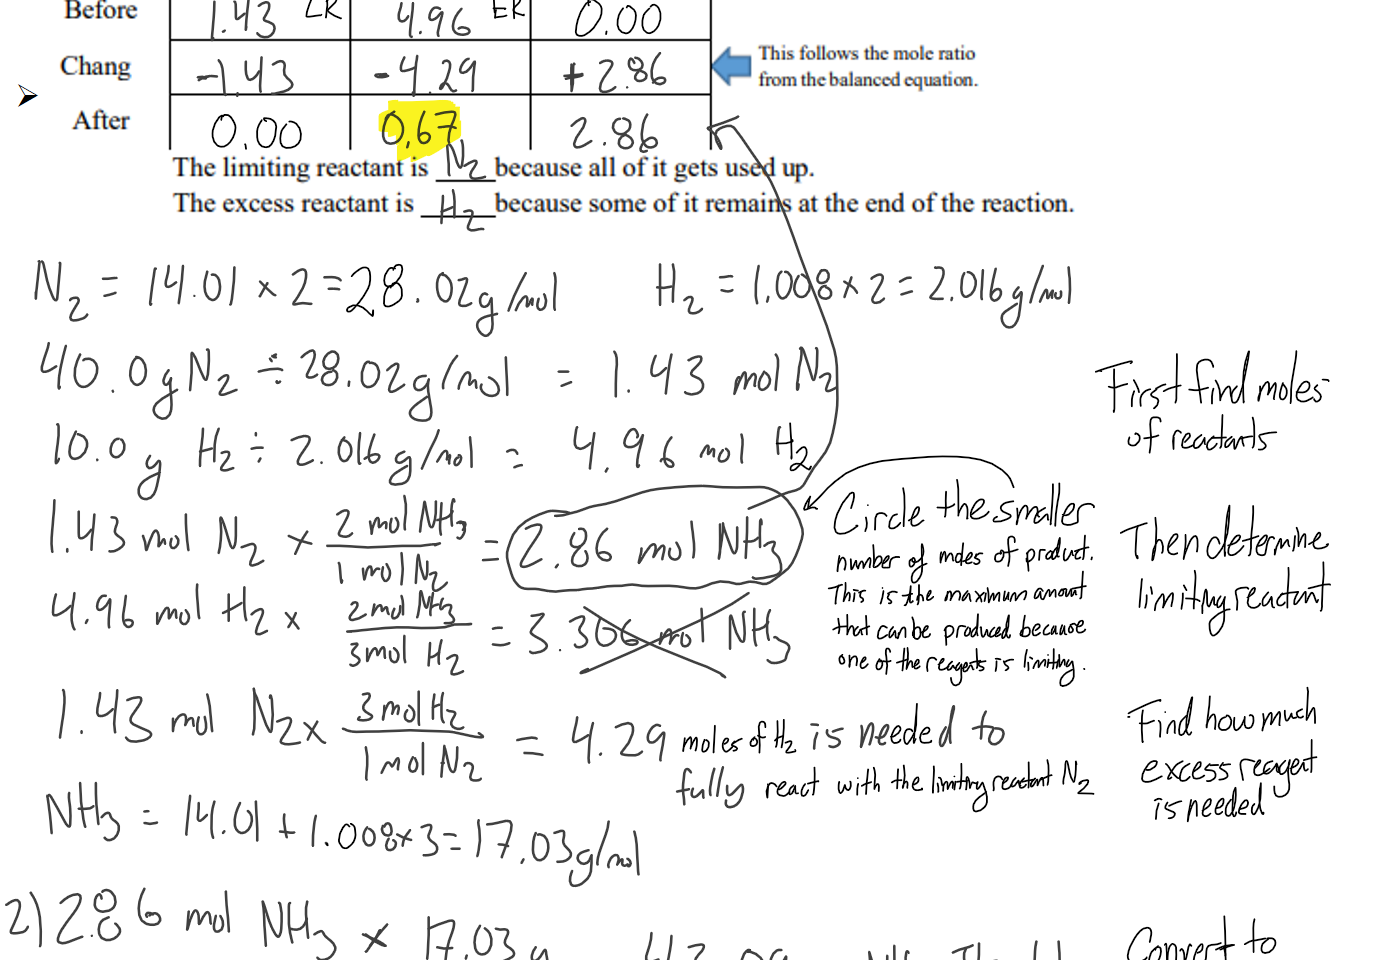 Before 1.43 LR 4.96 ER 0.00
Chang -1.43 -4.29 +2.86
This follows the mole ratio
from the balanced equation.
After 0.00 0.67 2.86
The limiting reactant is N2 because all of it gets used up.
The excess reactant is H2 because some of it remains at the end of the reaction.
N2 = 14.01 × 2 = 28.02g/mol H2 = 1.008 × 2 = 2.016g/mol
40.0g N2 ÷ 28.02g/mol = 1.43 mol N2
First find moles
of reactants
10.0g H2 ÷ 2.016g/mol = 4.96 mol H2
1.43 mol N2 × 2 mol NH3 / 1 mol N2 = 2.86 mol NH3
4.96 mol H2 × 2 mol NH3 / 3 mol H2 = 3.306 mol NH3
Circle the smaller
number of moles of product.
This is the maximum amount
that can be produced because
one of the reagents is limiting.
Then determine
limiting reactant
1.43 mol N2 × 3 mol H2 / 1 mol N2 = 4.29 moles of H2 is needed to
fully react with the limiting reactant N2
Find how much
excess reagent
is needed
NH3 = 14.01 + 1.008×3 = 17.03g/mol
2) 2.86 mol NH3 × 17.03
Convert to